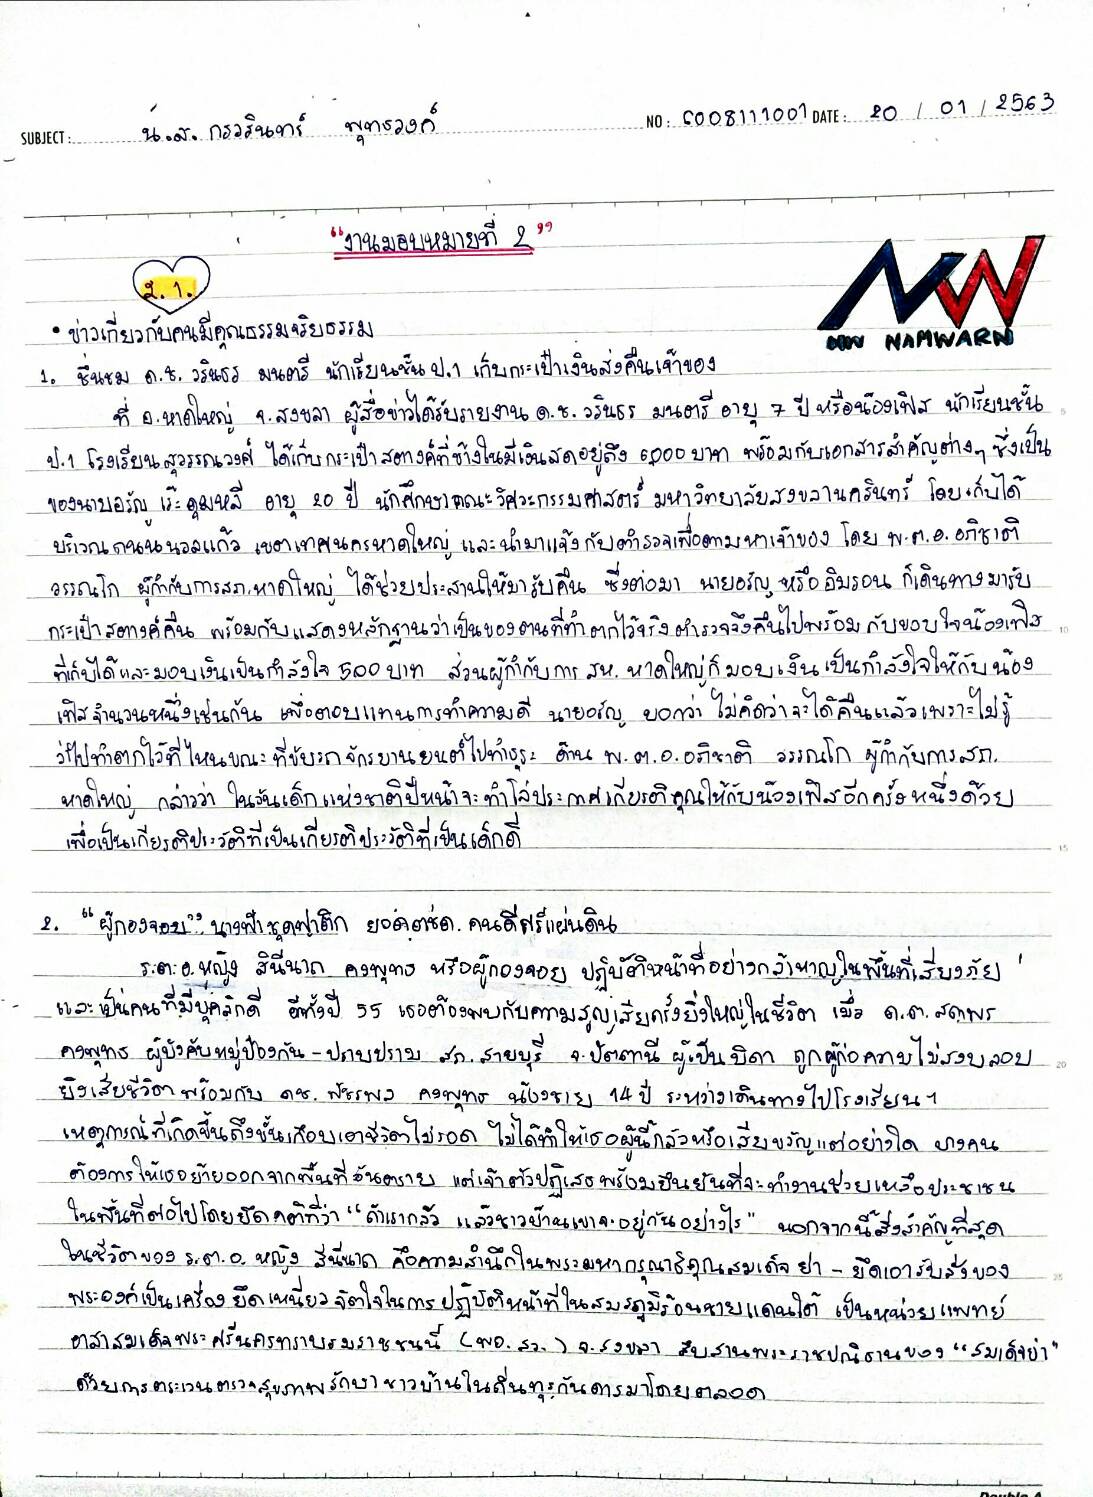 SUBJECT: น.ส. กรวรินทร์ พุทธวงค์ NO: 6008111001 DATE: 20 / 01 / 2563
“งานมอบหมายที่ 2”
2.1.
NW NAMWARN
• ข่าวเกี่ยวกับคนมีคุณธรรมจริยธรรม
1. ชื่นชม ด.ช. วรินธร มนตรี นักเรียนชั้น ป.1 เก็บกระเป๋าเงินส่งคืนเจ้าของ
ที่ อ.หาดใหญ่ จ.สงขลา ผู้สื่อข่าวได้รับรายงาน ด.ช. วรินธร มนตรี อายุ 7 ปี หรือน้องเฟิส นักเรียนชั้น
ป.1 โรงเรียนสุวรรณวงศ์ ได้เก็บกระเป๋าสตางค์ที่ข้างในมีเงินสดอยู่ถึง 6,000 บาท พร้อมกับเอกสารสำคัญต่างๆ ซึ่งเป็น
ของนายอรัญ เจ๊ะดุมหลี อายุ 20 ปี นักศึกษาคณะวิศวะกรรมศาสตร์ มหาวิทยาลัยสงขลานครินทร์ โดยเก็บได้
บริเวณถนนนวลแก้ว เขตเทศนครหาดใหญ่ และนำมาแจ้งกับตำรวจเพื่อตามหาเจ้าของ โดย พ.ต.อ. อภิชาติ
วรรณโก ผู้กำกับการสภ.หาดใหญ่ ได้ช่วยประสานให้มารับคืน ซึ่งต่อมา นายอรัญ หรือ อิมรอน ก็เดินทางมารับ
กระเป๋าสตางค์คืน พร้อมกับแสดงหลักฐานว่าเป็นของตนที่ทำตกไว้จริง ตำรวจจึงคืนไปพร้อมกับขอบใจน้องเฟิส
ที่เก็บได้และมอบเงินเป็นกำลังใจ 500 บาท ส่วนผู้กำกับการ สห. หาดใหญ่ก็มอบเงินเป็นกำลังใจให้กับน้อง
เฟิสจำนวนหนึ่งเช่นกัน เพื่อตอบแทนการทำความดี นายอรัญ บอกว่า ไม่คิดว่าจะได้คืนแล้วเพราะไม่รู้
ว่าไปทำตกไว้ที่ไหนขณะที่ขับรถจักรยานยนต์ไปทำธุระ ด้าน พ.ต.อ.อภิชาติ วรรณโก ผู้กำกับการสภ.
หาดใหญ่ กล่าวว่า ในวันเด็กแห่งชาติปีหน้าจะทำโล่ประกาศเกียรติคุณให้กับน้องเฟิสอีกครั้งหนึ่งด้วย
เพื่อเป็นเกียรติประวัติที่เป็นเกียรติประวัติที่เป็นเด็กดี
2. “ผู้กองจอย” นางฟ้าชุดฟาติก ยอด ตชด. คนดีศรีแผ่นดิน
ร.ต.อ.หญิง สินีนาถ คงพุทธ หรือผู้กองจอย ปฏิบัติหน้าที่อย่างกล้าหาญในพื้นที่เสี่ยงภัย
และเป็นคนที่มีบุคลิกดี อีกทั้งปี 55 เธอต้องพบกับความสูญเสียครั้งยิ่งใหญ่ในชีวิต เมื่อ ด.ต.สถาพร
คงพุทธ ผู้บังคับหมู่ป้องกัน-ปราบปราม สภ.สายบุรี จ.ปัตตานี ผู้เป็นบิดา ถูกผู้ก่อความไม่สงบลอบ
ยิงเสียชีวิตพร้อมกับ ดช. พัชรพล คงพุทธ น้องชาย 14 ปี ระหว่างเดินทางไปโรงเรียนฯ
เหตุการณ์ที่เกิดขึ้นถึงขั้นเกือบเอาชีวิตไม่รอด ไม่ได้ทำให้เธอผู้นี้กลัวหรือเสียขวัญแต่อย่างใด บางคน
ต้องการให้เธอย้ายออกจากพื้นที่อันตราย แต่เจ้าตัวปฏิเสธพร้อมยืนยันที่จะทำงานช่วยเหลือประชาชน
ในพื้นที่ต่อไปโดยยึดคติที่ว่า “ถ้าเรากลัว แล้วชาวบ้านเขาจะอยู่กันอย่างไร” นอกจากนี้สิ่งสำคัญที่สุด
ในชีวิตของ ร.ต.อ. หญิง สินีนาถ คือความสำนึกในพระมหากรุณาธิคุณสมเด็จย่า - ยึดเอารับสั่งของ
พระองค์เป็นเครื่องยึดเหนี่ยวจิตใจในการปฏิบัติหน้าที่ในสมรภูมิร้อนชายแดนใต้ เป็นหน่วยแพทย์
อาสาสมเด็จพระศรีนครินทราบรมราชชนนี (พอ.สว.) จ.สงขลา สืบสานพระราชปณิธานของ “สมเด็จย่า”
ด้วยการตระเวนตรวจสุขภาพรักษาชาวบ้านในถิ่นทุรกันดารมาโดยตลอด
Double A